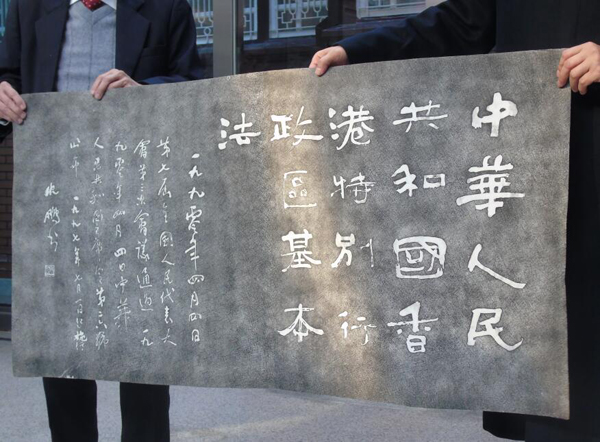 中華人民
共和國香
港特別行
政區基本
法
一九九零年四月四日
第七屆全國人民代表大
會第三次會議通過 一九
九零年四月四日中華
人民共和國主席令第二六號
公布 一九九七年七月一日起施